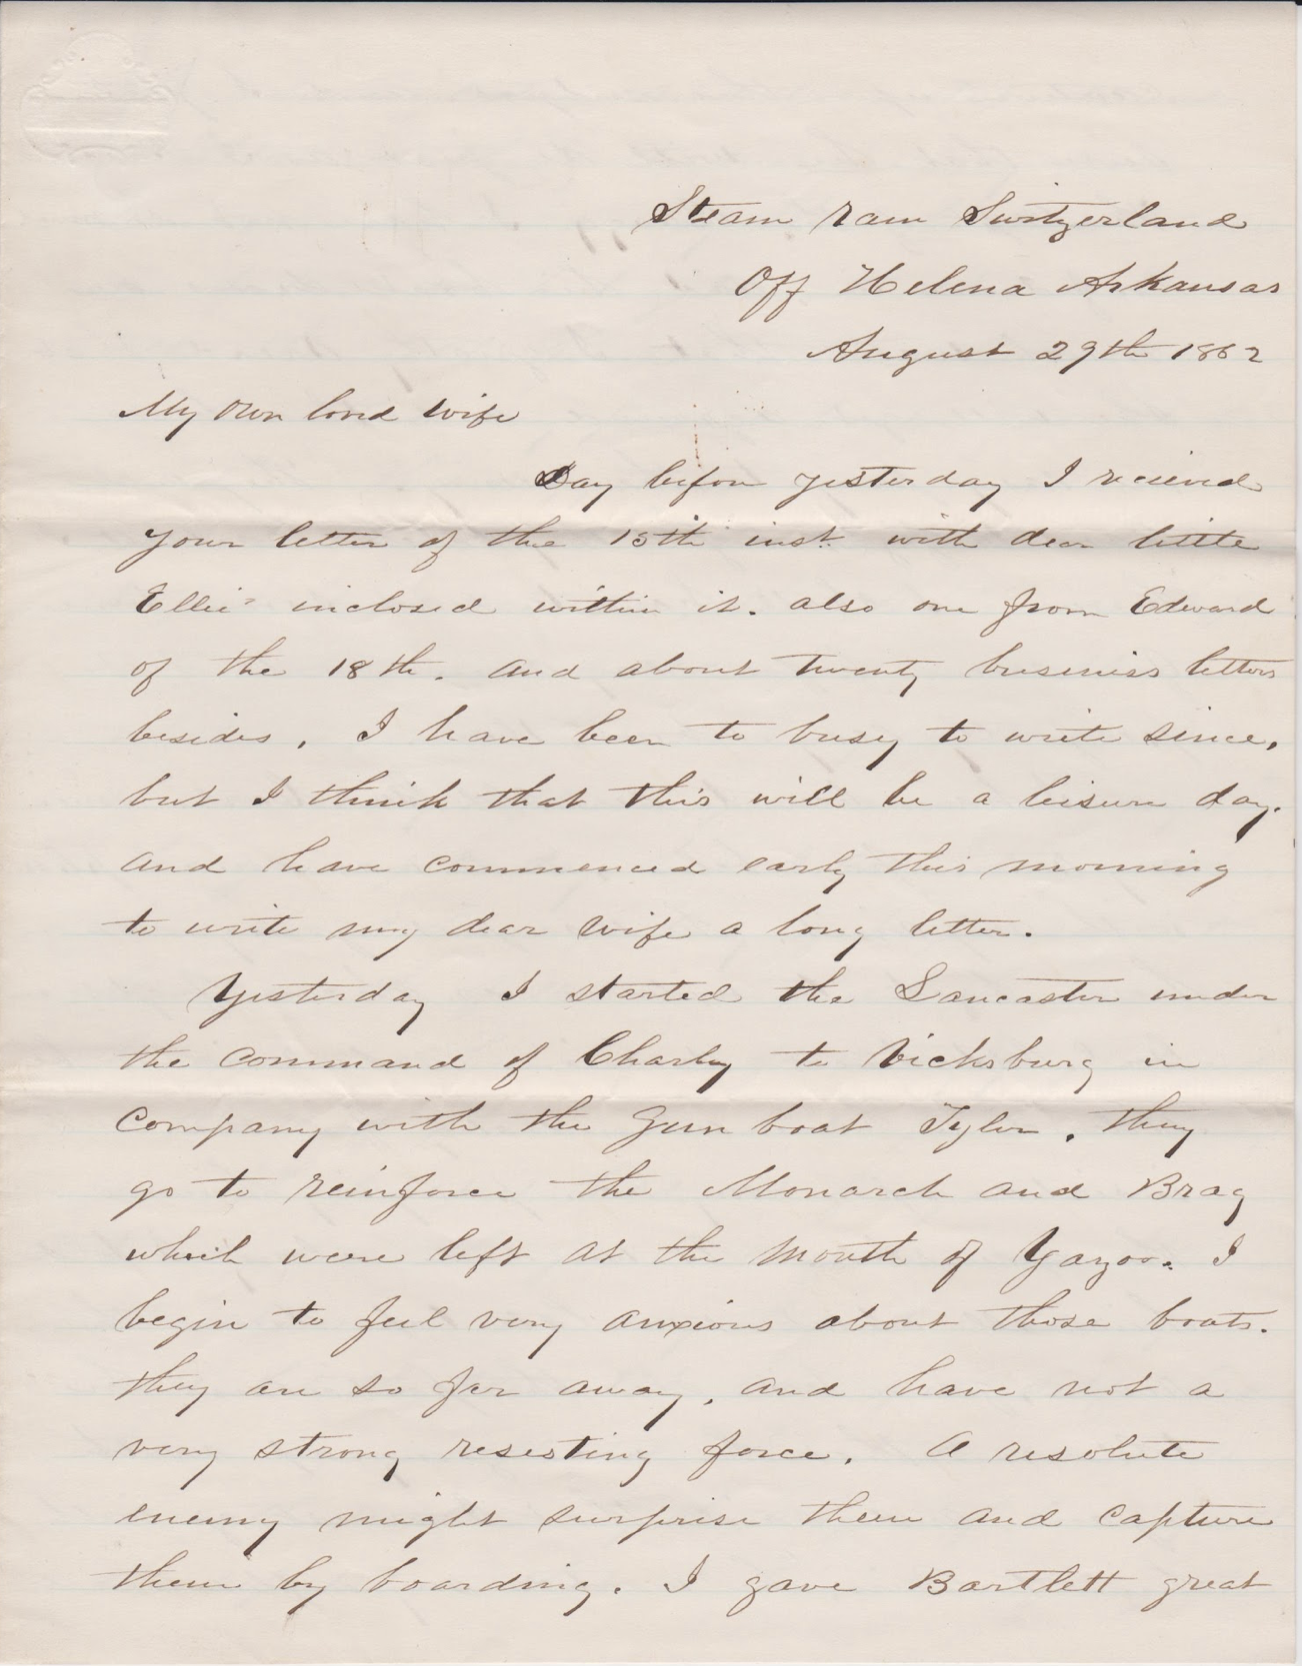 Steam ram Switzerland
Off Helena Arkansas
August 29th 1862
My own loved wife
Day before yesterday I recieved
your letter of the 15th inst. with dear little
Ellie's inclosed within it. also one from Edward
of the 18th. and about twenty business letters
besides. I have been to busy to write since,
but I think that this will be a leisure day.
and have commenced early this morning
to write my dear wife a long letter.
Yesterday I started the Lancaster under
the command of Charley to Vicksburg in
company with the Gun boat Tyler. they
go to reinforce the Monarch and Brag
which were left at the mouth of Yazoo. I
begin to feel very anxious about those boats.
they are so far away, and have not a
very strong resesting force. A resolute
enemy might surprise them and capture
them by boarding. I gave Bartlett great